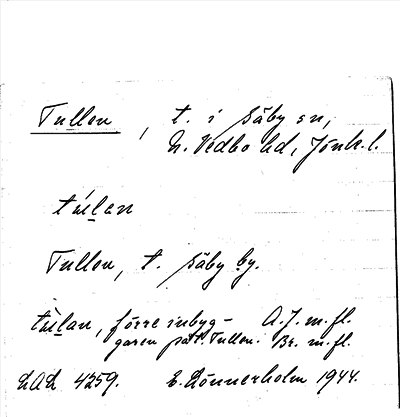 Tullen, t. i Säby sn,
N. Vedbo hd, Jönk. l.
túlan
Tullen, t. Säby by.
tùlan, förre inbyg- A.J. m. fl.
garen på t. Tullen. Br. m. fl.
LAL 4259. E. Rönnerholm 1944.